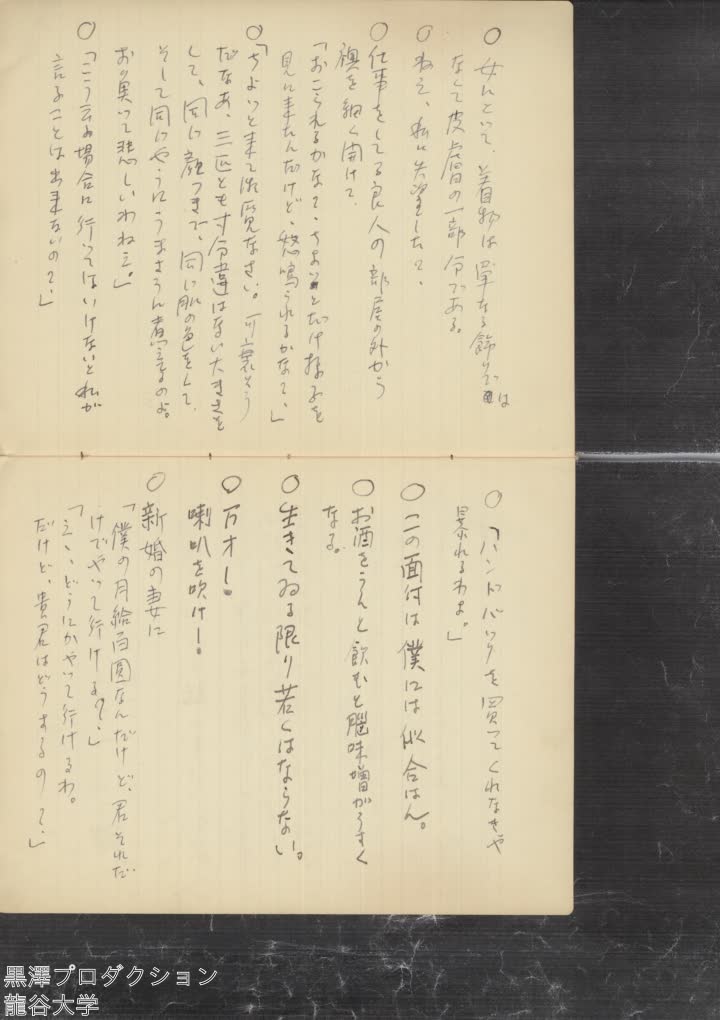 ○ 女にとって、着物は単なる飾りでは
なくて皮膚の一部分である。
○ ねえ、私に失望した?、
○ 仕事をしてる良人の部屋の外から
襖を細く開けて、
「おこられるかな?、ちょいとだけ様子を
見に来たんだけど、怒鳴られるかな?、」
○「ちょいと来て御覧なさい。可哀そう
だなあ、三匹とも寸分違はない大きさを
して、同じ顔つきで、同じ肌の色をして、
そして同じやうにうまさうに煮えてるのよ。
おお実って悲しいわねえ。」
○「こう云ふ場合に行ってはいけないと私が
言ることは出来ないの?、」
○ 「ハンドバックを買ってくれなきや
暴れるわよ。」
○ この面付は僕には似合はん。
○ お酒をうんと飲むと脳味噌がうすく
なる。
○ 生きてゐる限り若くはならない。
○ 万才ー!
喇叭を吹けー!
○ 新婚の妻に
「僕の月給百圓なんだけど、君それだ
けでやって行ける?、」
「ええ、どうにかやって行けるわ。
だけど、貴君はどうするの?、」
黒澤プロダクション
龍谷大学